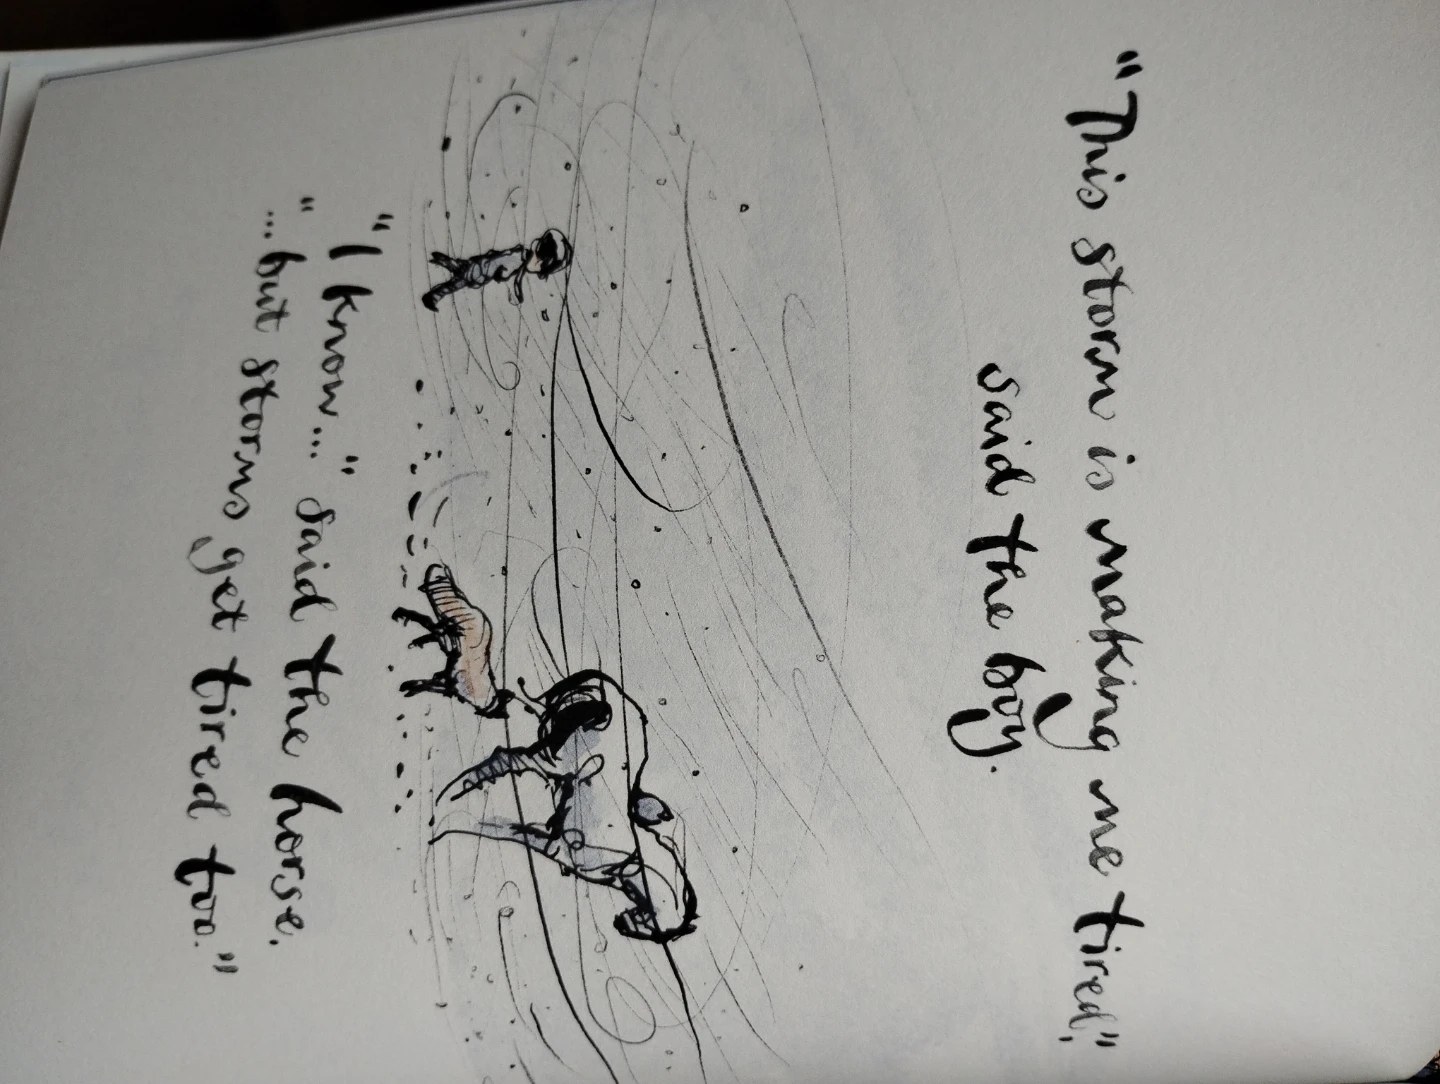 "This storm is making me tired",
said the boy.
"I know..." said the horse.
"...but storms get tired too."